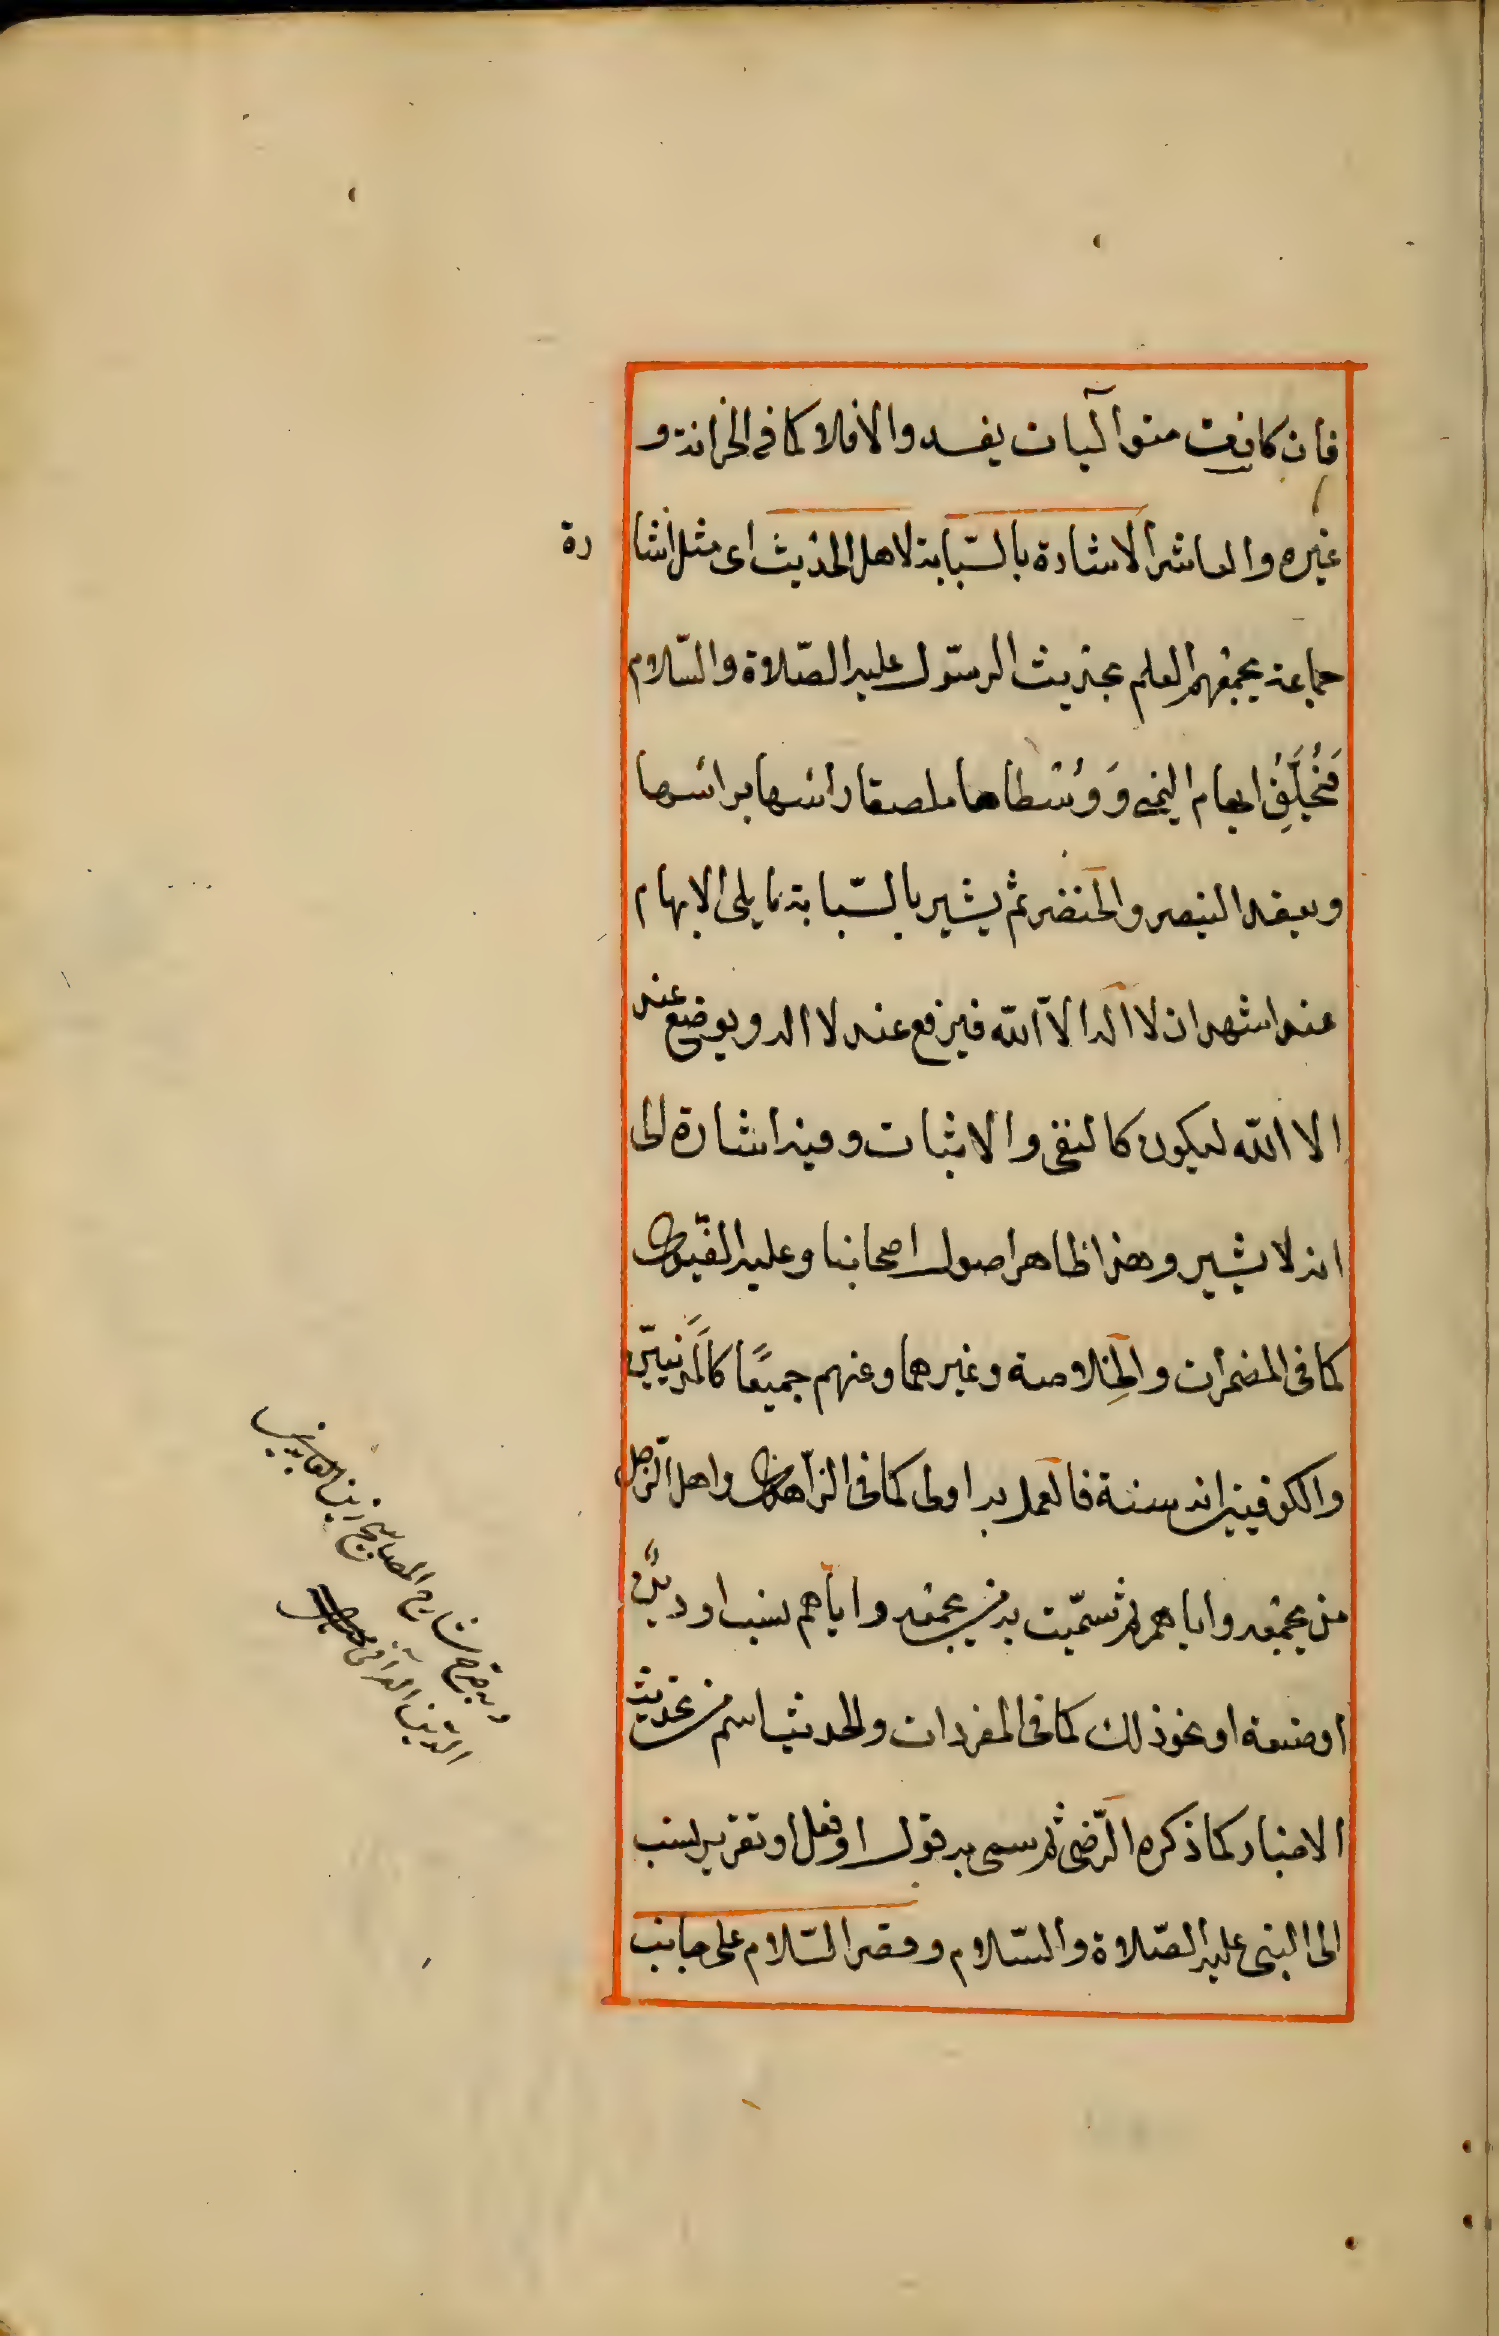 فان كانت متواليات يفسد والا فلا كما في الخزانة و
غيره والعاشر الاشارة بالسّبابة لاهل الحديث اى مثل اشارة
جماعة يجمعهم العلم بحديث الرسول عليه الصّلاة والسّلام
فَيُحَلِّقُ ابهام اليمنى وَوُسْطاها ملصقا راسها براسها
ويعقد البنصر والخنصر ثم يشير بالسّبابة ما يلى الابهام
عند اشهد ان لا اله الا الله فيرفع عند لا اله ويوضع عند
الا الله ليكون كالنفى والاثبات وفيه اشارة الى
انه لا يشير وهذا ظاهر اصول اصحابنا وعليه الفتوى
كما فى المضمرات والخِلاصة وغيرهما وعنهم جميعًا كالمدنيّين
والكوفيين انه سنة فالعمل به اولى كما فى الزاهدى واهل الرّجل
من يجمعه واياهم ثم سمّيت به من يجمعه واياهم نسب او دين
او صنعة او نحو ذلك كما فى المفردات والحديث اسم من تحديث
الاخبار كما ذكره الرّضى ثم سمى به قول او فعل او تقرير نسب
الى النبى عليه الصّلاة والسّلام وقصر السّلام على جانب
وبه صرّح شارح المصابيح زين العابدين
الدّين